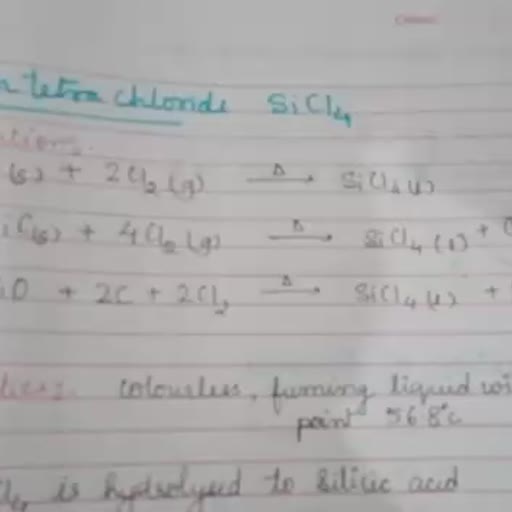 n tetra chloride SiCl4
ation.
(s) + 2Cl2 (g) Δ→ SiCl4 (l)
iC(s) + 4Cl2 (g) Δ→ SiCl4 (l) + C
iO + 2C + 2Cl2 Δ→ SiCl4 (l) +
colourless, fuming liquid wi
point 56.8°C
Cl4 is hydrolysed to silicic acid